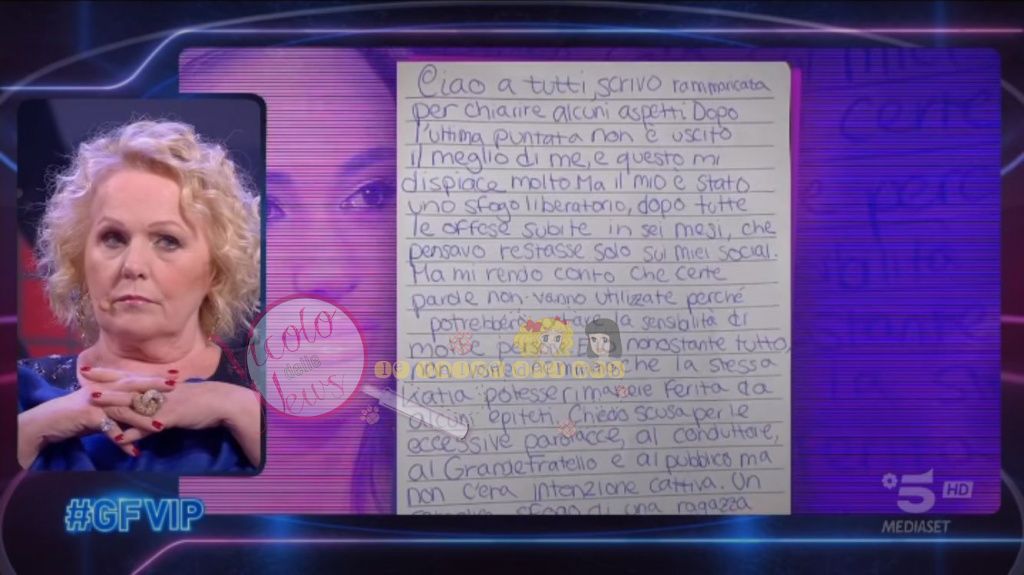 Ciao a tutti, scrivo rammaricata
per chiarire alcuni aspetti. Dopo
l'ultima puntata non è uscito
il meglio di me, e questo mi
dispiace molto. Ma il mio è stato
uno sfogo liberatorio, dopo tutte
le offese subite in sei mesi, che
pensavo restasse solo sui miei social.
Ma mi rendo conto che certe
parole non vanno utilizzate perché
la sensibilità di
molte nonostante tutto,
non che la stessa
Katia potesse rimanere ferita da
alcuni epiteti. Chiedo scusa per le
eccessive parolacce, al conduttore,
al Grande Fratello e al pubblico ma
non c'era intenzione cattiva. Un
sfogo di una ragazza
certe
Vicolo
delle
News
#GFVIP
5 HD
MEDIASET